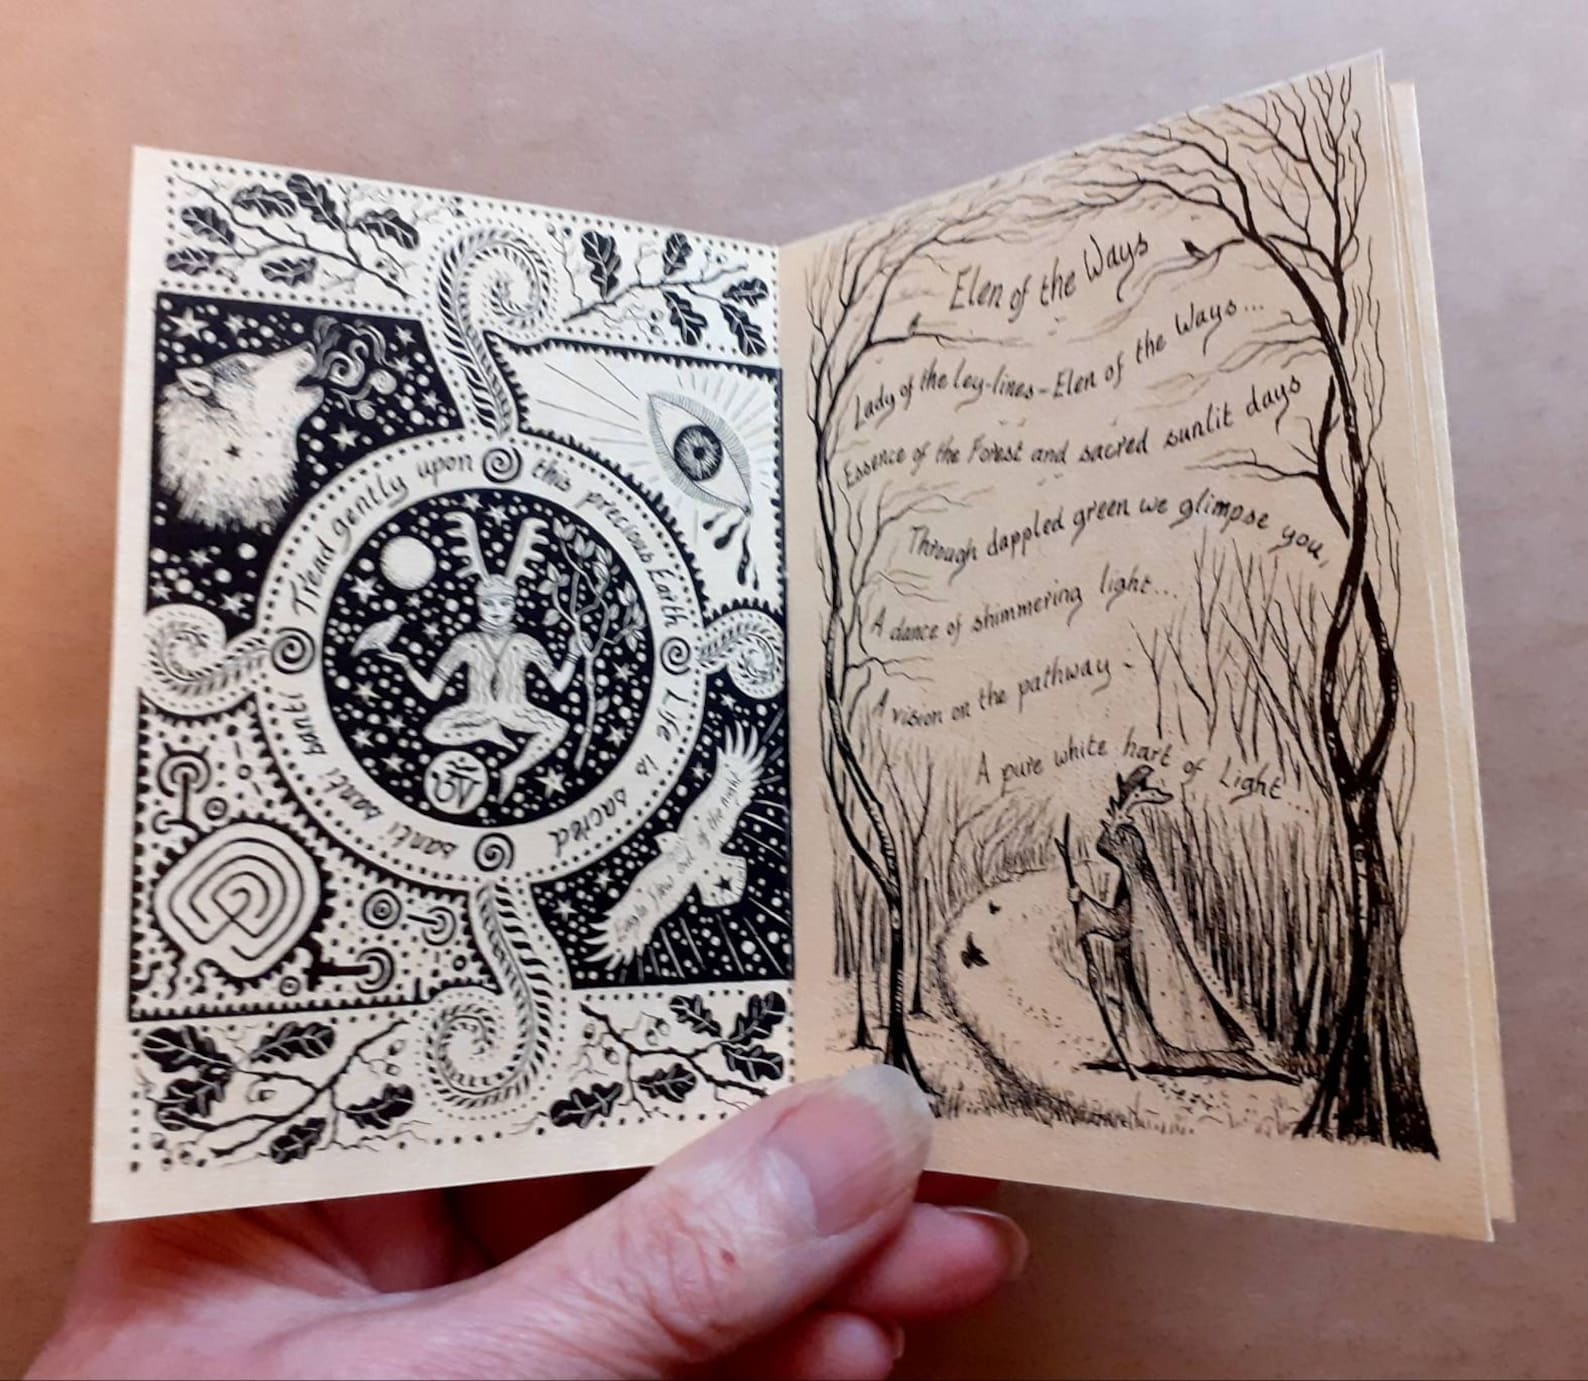 Tread gently upon
this precious Earth
Life is sacred
santi santi santi
ॐ
Eagle flew out of the night
Elen of the Ways
Lady of the ley-lines - Elen of the Ways...
Essence of the Forest and sacred sunlit days
Through dappled green we glimpse you,
A dance of shimmering light...
A vision on the pathway -
A pure white hart of Light...